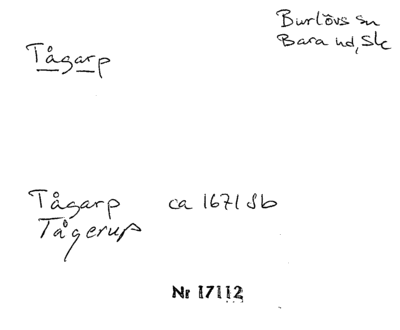 Burlövs sn
Bara hd, Sk
Tågarp
Tågarp ca 1671 Jb
Tågerup
Nr 17112